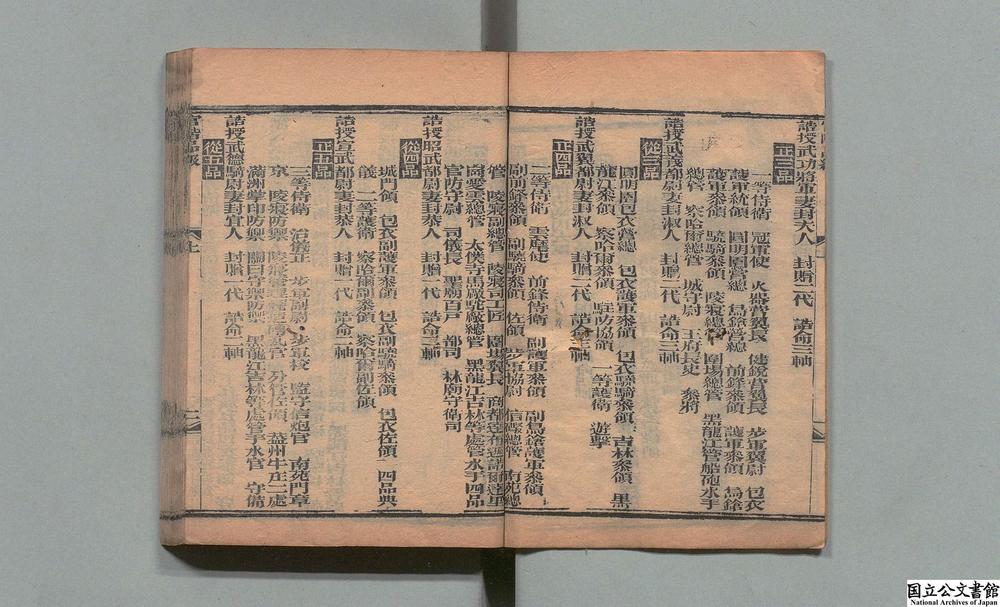 誥授武功將軍妻封夫人 封贈二代 誥命三軸
正三品
一等侍衛 冠軍使 火器營翼長 健銳營翼長 步軍翼尉 包衣
護軍統領 圓明園營總 鳥鎗營總 前鋒參領 護軍參領 鳥鎗
護軍參領 驍騎參領 陵寢總管 圍場總管 黑龍江管船砲水手
總管 察哈爾總管 城守尉 王府長史 參將
從三品
誥授武義都尉妻封淑人 封贈二代 誥命三軸
圓明園包衣營總 包衣護軍參領 包衣驍騎參領 吉林參領 黑
龍江參領 察哈爾參領 駐防協領 一等護衛 遊擊
誥授武翼都尉妻封淑人 封贈二代 誥命三軸
正四品
二等侍衛 雲麾使 前鋒侍衛 副護軍參領 副鳥鎗護軍參領
副前鋒參領 副驍騎參領 佐領 步軍協尉 信礮總管 南苑總
管 陵寢副總管 陵寢司工匠 圍場翼長 商都達布遜諾爾達里
岡愛雲總管 太僕寺馬廠駝廠總管 黑龍江吉林等處管水手四品
官防守尉 司儀長 聖廟百戶 都司 林廟守衛司
誥授昭武都尉妻封恭人 封贈二代 誥命
從四品
城門領 包衣副護軍參領 包衣副驍騎參領 包衣佐領 四品典
儀 二等護衛 察哈爾副參領 察哈爾副佐領
誥授宣武都尉妻封恭人 封贈二代 誥命二軸
正五品
三等侍衛 治儀正 步軍副尉 步軍校 監守信炮官 南苑門章
京 陵寢防禦 牙營佐領 盛州牛庄二處
滿洲掌印防禦 關口守禦防禦 黑龍江吉林等處管手水官 守備
誥授武德騎尉妻封宜人 封贈一代 誥命二軸
從五品
官階品級
七